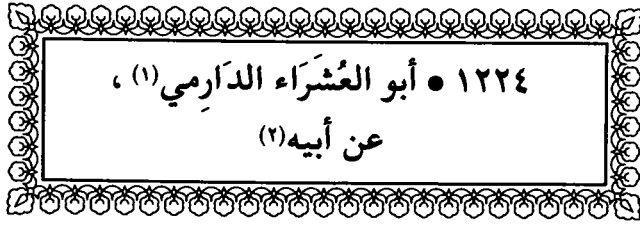 ١٢٢٤ • أبو العُشَرَاء الدَارِمي(١) ،
عن أبيه(٢)